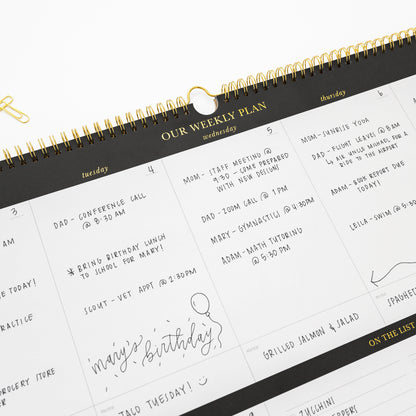 OUR WEEKLY PLAN
tuesday
wednesday
thursday
3
AM
E TODAY!
RACTICE
ROCERY STORE
4
DAD- CONFERENCE CALL
@ 8:30 AM
* BRING BIRTHDAY LUNCH
TO SCHOOL FOR MARY!
SCOUT - VET APPT @ 2:30 PM
mary's birthday
TACO TUESDAY!
5
MOM- STAFF MEETING @
9:30 - COME PREPARED
WITH NEW DESIGN!
DAD- ZOOM CALL @ 1 PM
MARY- GYMNASTICS @ 4:30PM
ADAM- MATH TUTORING
@ 5:30 PM
GRILLED SALMON & SALAD
6
MOM- SUNRISE YOGA
DAD- FLIGHT LEAVES @ 8AM
↳ ASK UNCLE MICHAEL FOR A
RIDE TO THE AIRPORT
ADAM- BOOK REPORT DUE
TODAY!
LEILA- SWIM @ 5:30
SPAGHET
ON THE LIST
ZUCCHINI
PEPPERS